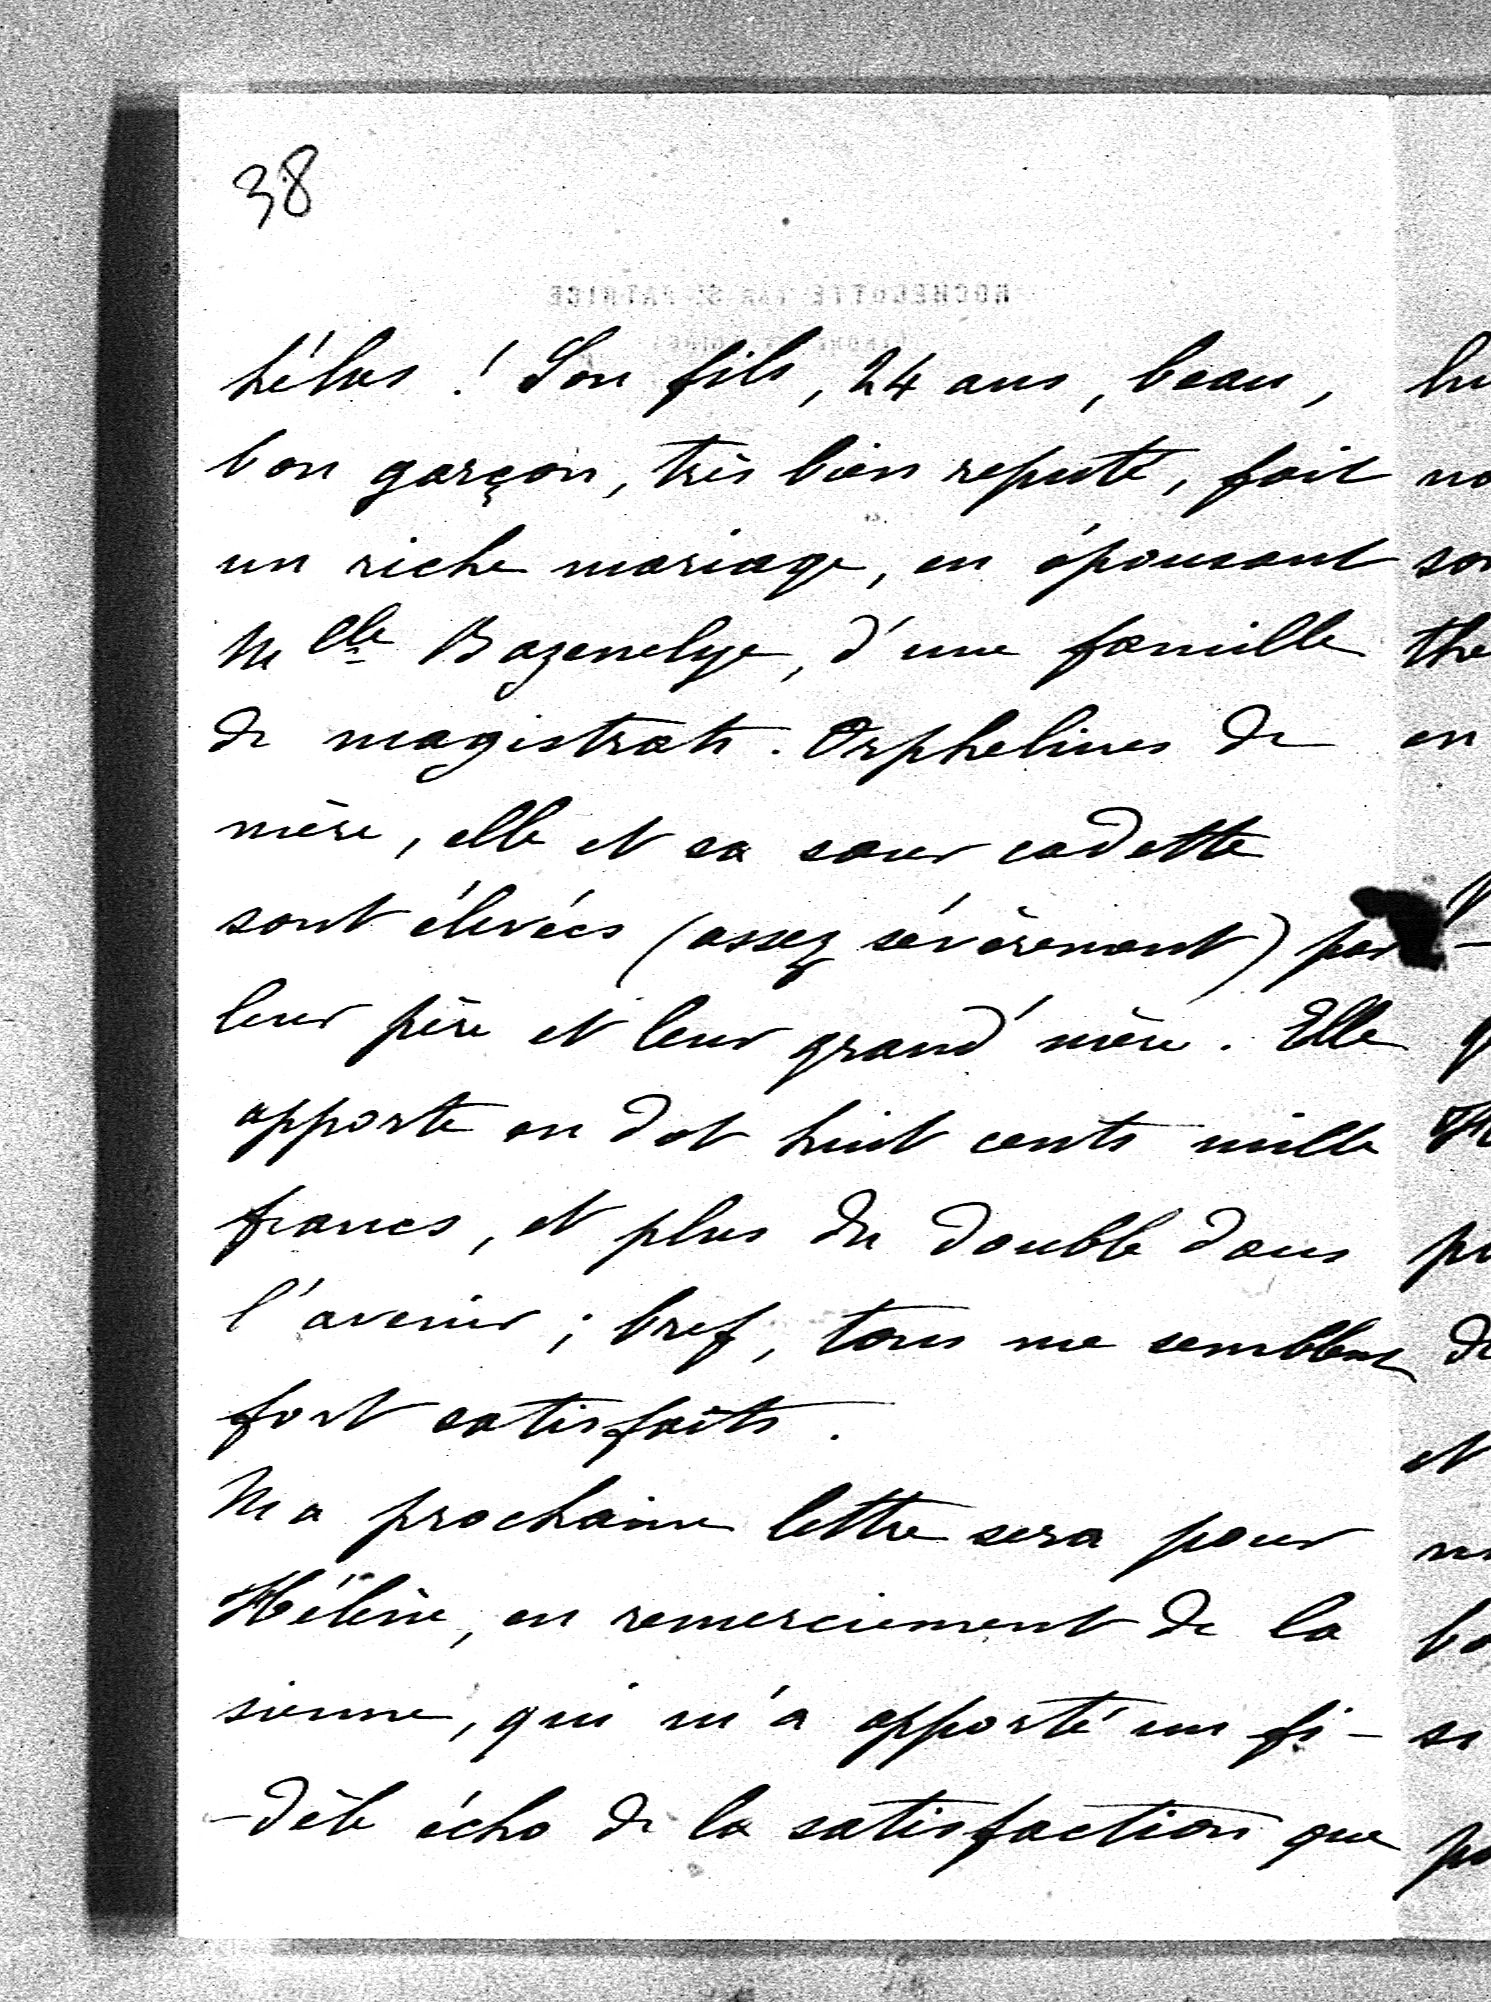 38
hélas ! Son fils, 24 ans, beau,
bon garçon, très bien reputé, fait
un riche mariage, en épousant
Melle Bazenelye, d'une famille
de magistrats. Orphelines de
mère, elle et sa sœur cadette
sont élevées (assez sévèrement) par
leur père et leur grand'mère. Elle
apporte en dot huit cents mille
francs, et plus du double dans
l'avenir ; bref, tous me semblent
fort satisfaits.
Ma prochaine lettre sera pour
Hélène, en remerciement de la
sienne, qui m'a apporté un fi-
-dèle écho de la satisfaction que